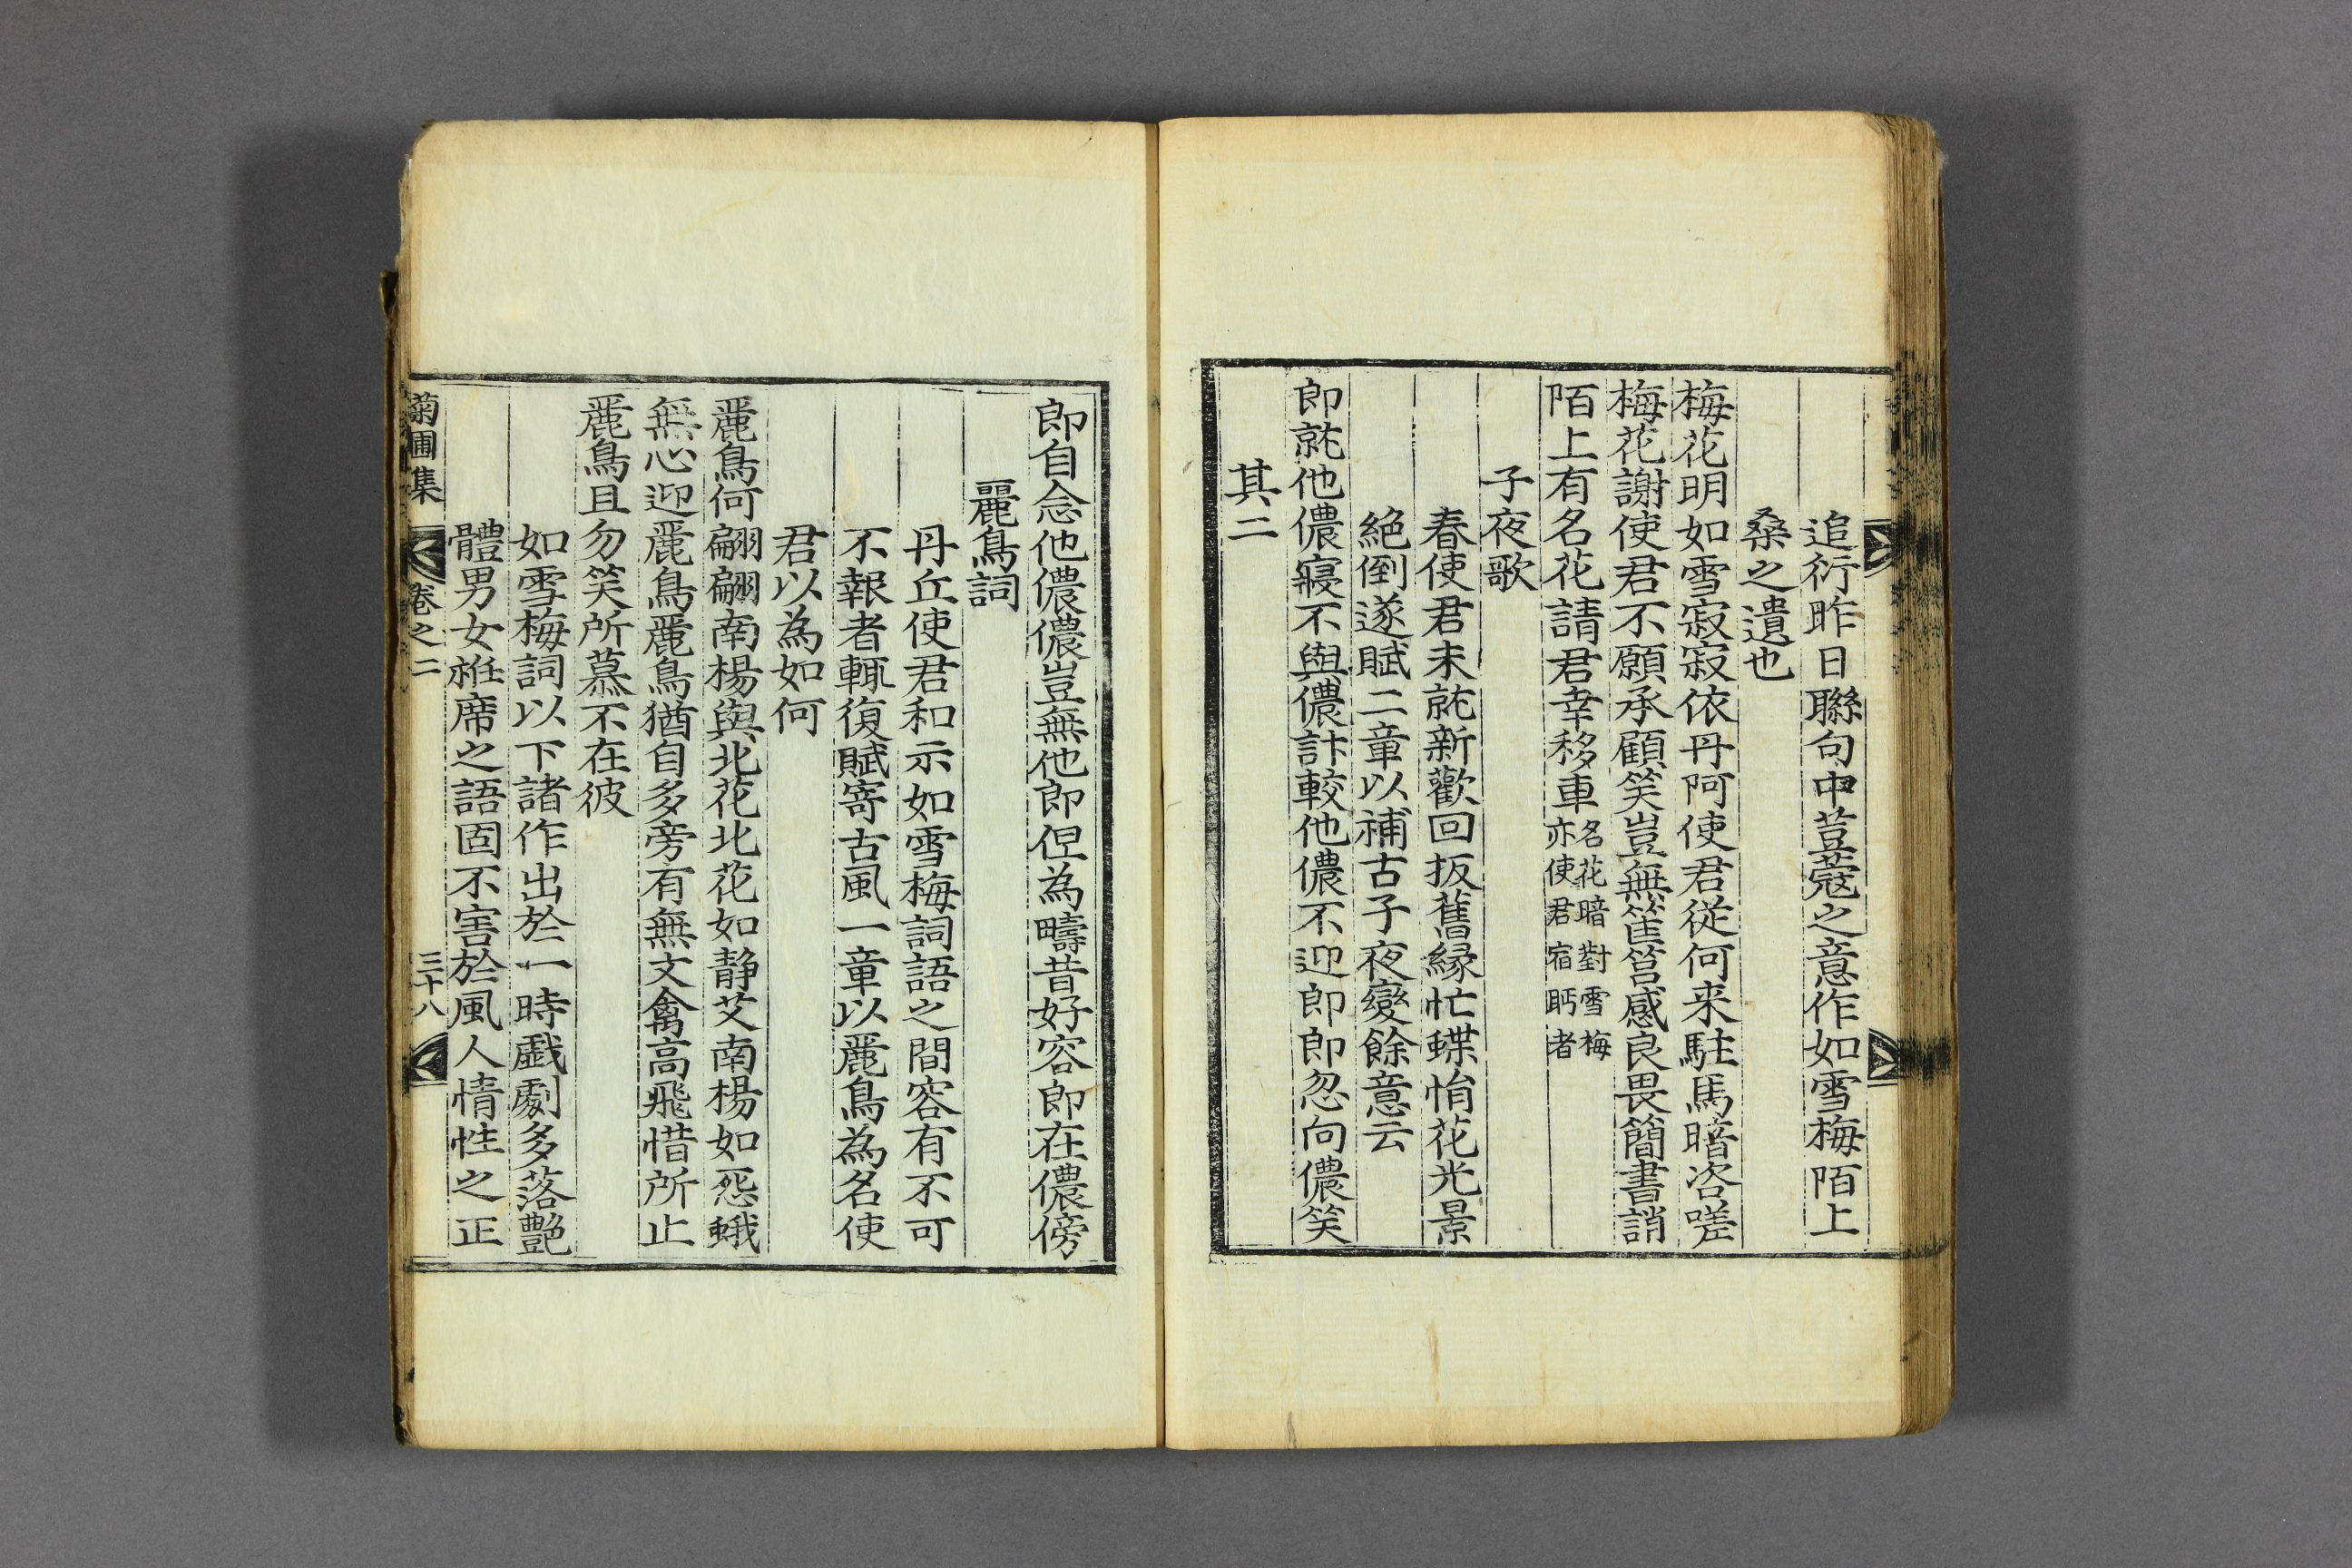 追衍昨日聯句中荳蔻之意作如雪梅陌上
桑之遺也
梅花明如雪寂寂依丹阿使君従何来駐馬暗咨嗟
梅花謝使君不願承顧笑豈無筐筥感良畏簡書誚
陌上有名花請君幸移車名花暗對雪梅
亦使君宿眄者
子夜歌
春使君未就新歡回扳舊緣忙蝶怕花光景
絕倒遂賦二章以補古子夜變餘意云
郎就他儂寢不與儂計較他儂不迎郎郎忽向儂笑
其二
郎自念他儂儂豈無他郎但為疇昔好容郎在儂傍
麗鳥詞
丹丘使君和示如雪梅詞語之間容有不可
不報者輒復賦寄古風一章以麗鳥為名使
君以為如何
麗鳥何翩翩南楊與北花北花如静艾南楊如怨蛾
無心迎麗鳥麗鳥猶自多旁有無文禽高飛惜所止
麗鳥且勿笑所慕不在彼
如雪梅詞以下諸作出於一時戱劇多落艷
體男女袵席之語固不害於風人情性之正
菊圃集 卷之二 三十八